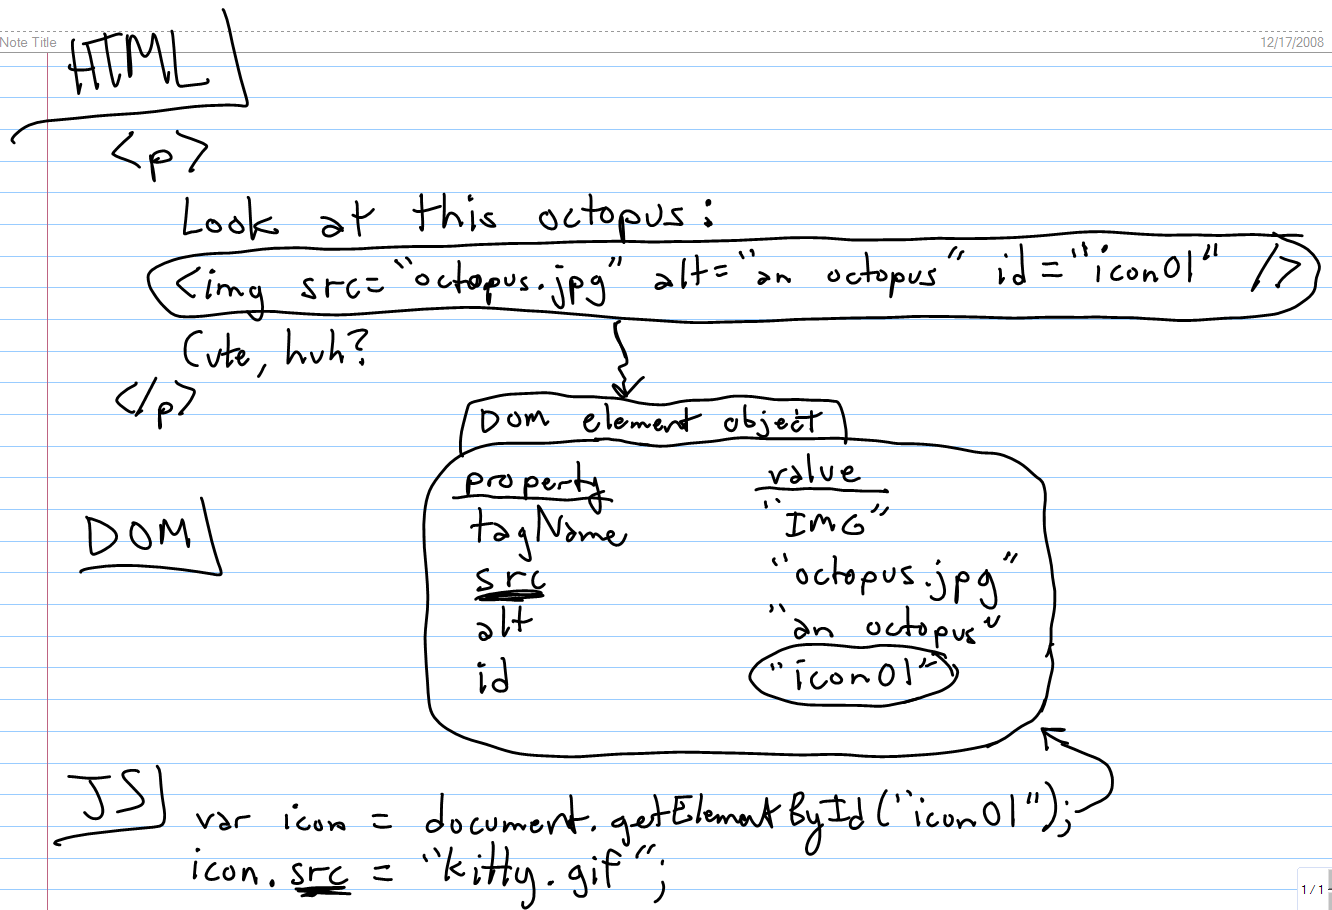 Note Title
12/17/2008
HTML
<p>
Look at this octopus:
<img src="octopus.jpg" alt="an octopus" id="icon01" />
Cute, huh?
</p>
DOM element object
property value
tagName "IMG"
DOM
src "octopus.jpg"
alt "an octopus"
id "icon01"
JS
var icon = document.getElementById("icon01");
icon.src = "kitty.gif";
1 / 1